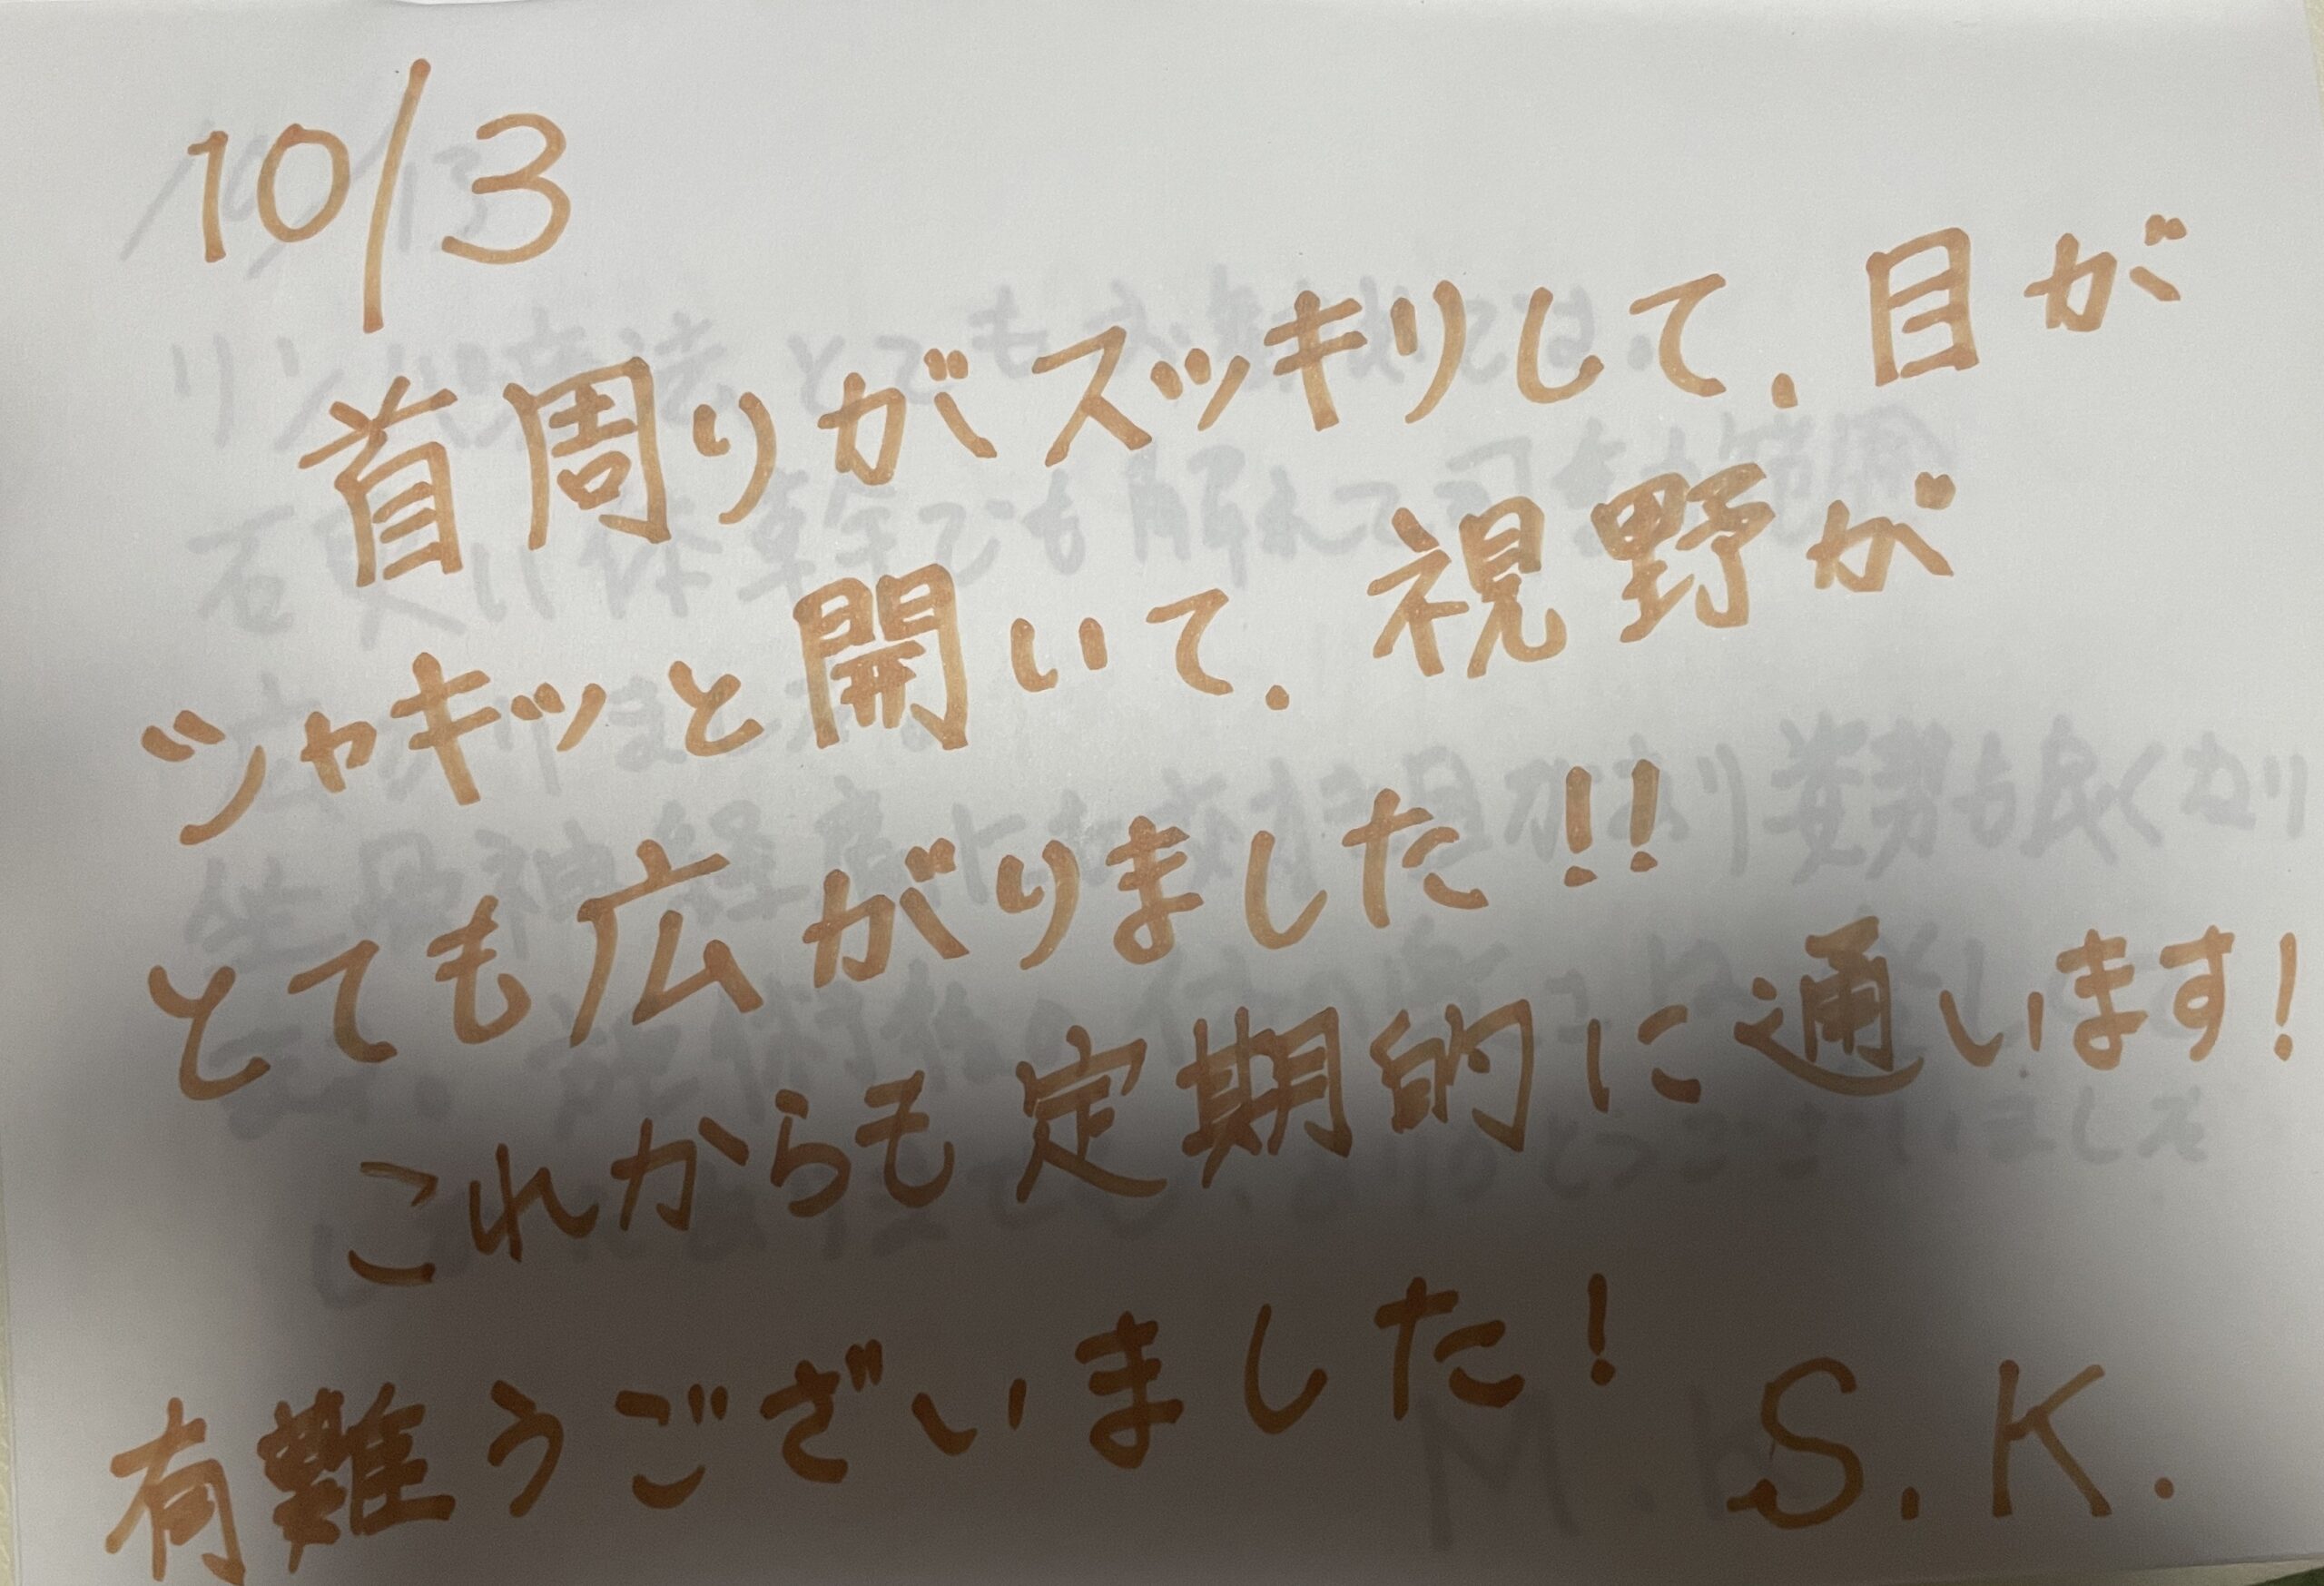 10/3
首周りがスッキリして、目が
シャキッと開いて、視野が
とても広がりました!!
これからも定期的に通います!
有難うございました!
S.K.